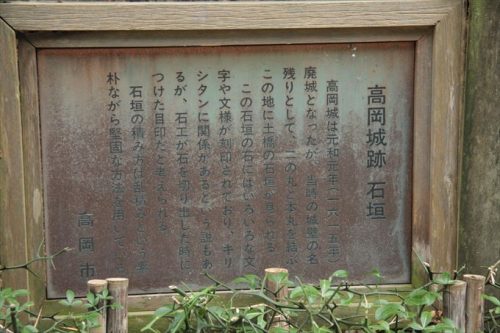 高岡城跡 石垣
高岡城は元和元年(一六一五年)
廃城となったが、当時の城壁の名
残りとして、二の丸と本丸を結ぶ
この地に土橋の石垣が見られる
この石垣の石にはいろいろな文
字や文様が刻印されており、キリ
シタンに関係があるという説もあ
るが、石工が石を切り出した時に
つけた目印だと考えられる
石垣の積み方は乱積みという素
朴ながら堅固な方法を用いてい
高岡市